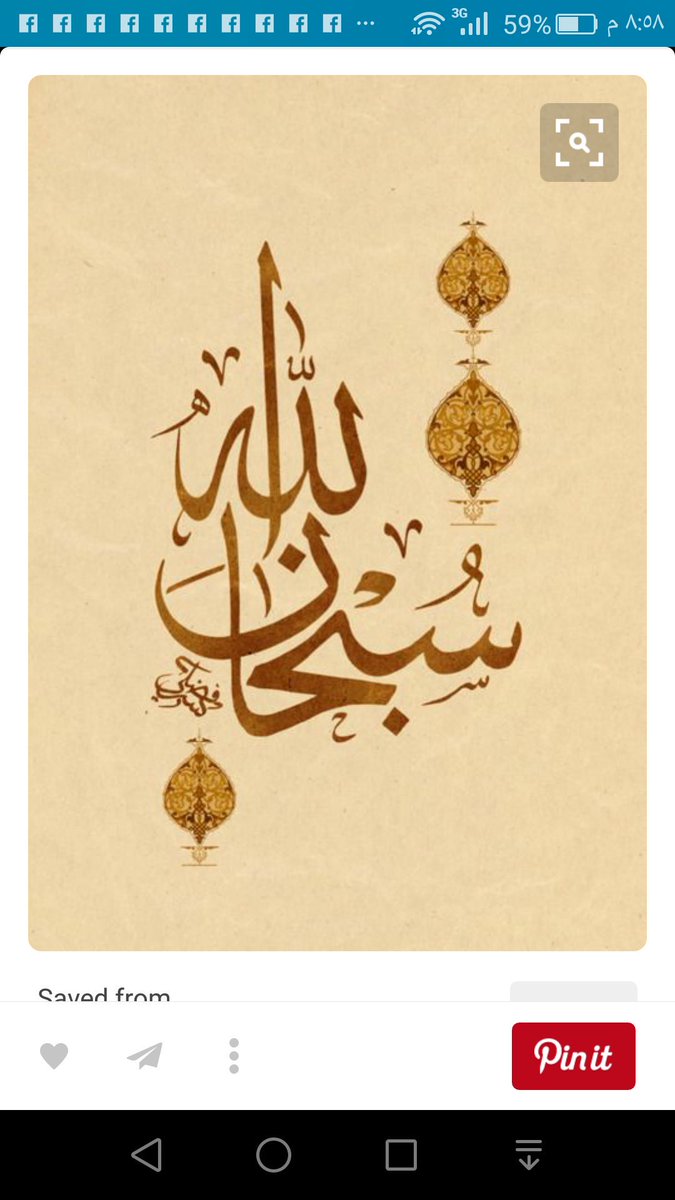 3G 59% ٨:٥٨ م
سُبْحَانَ اللّٰهُ
Saved from
Pin it